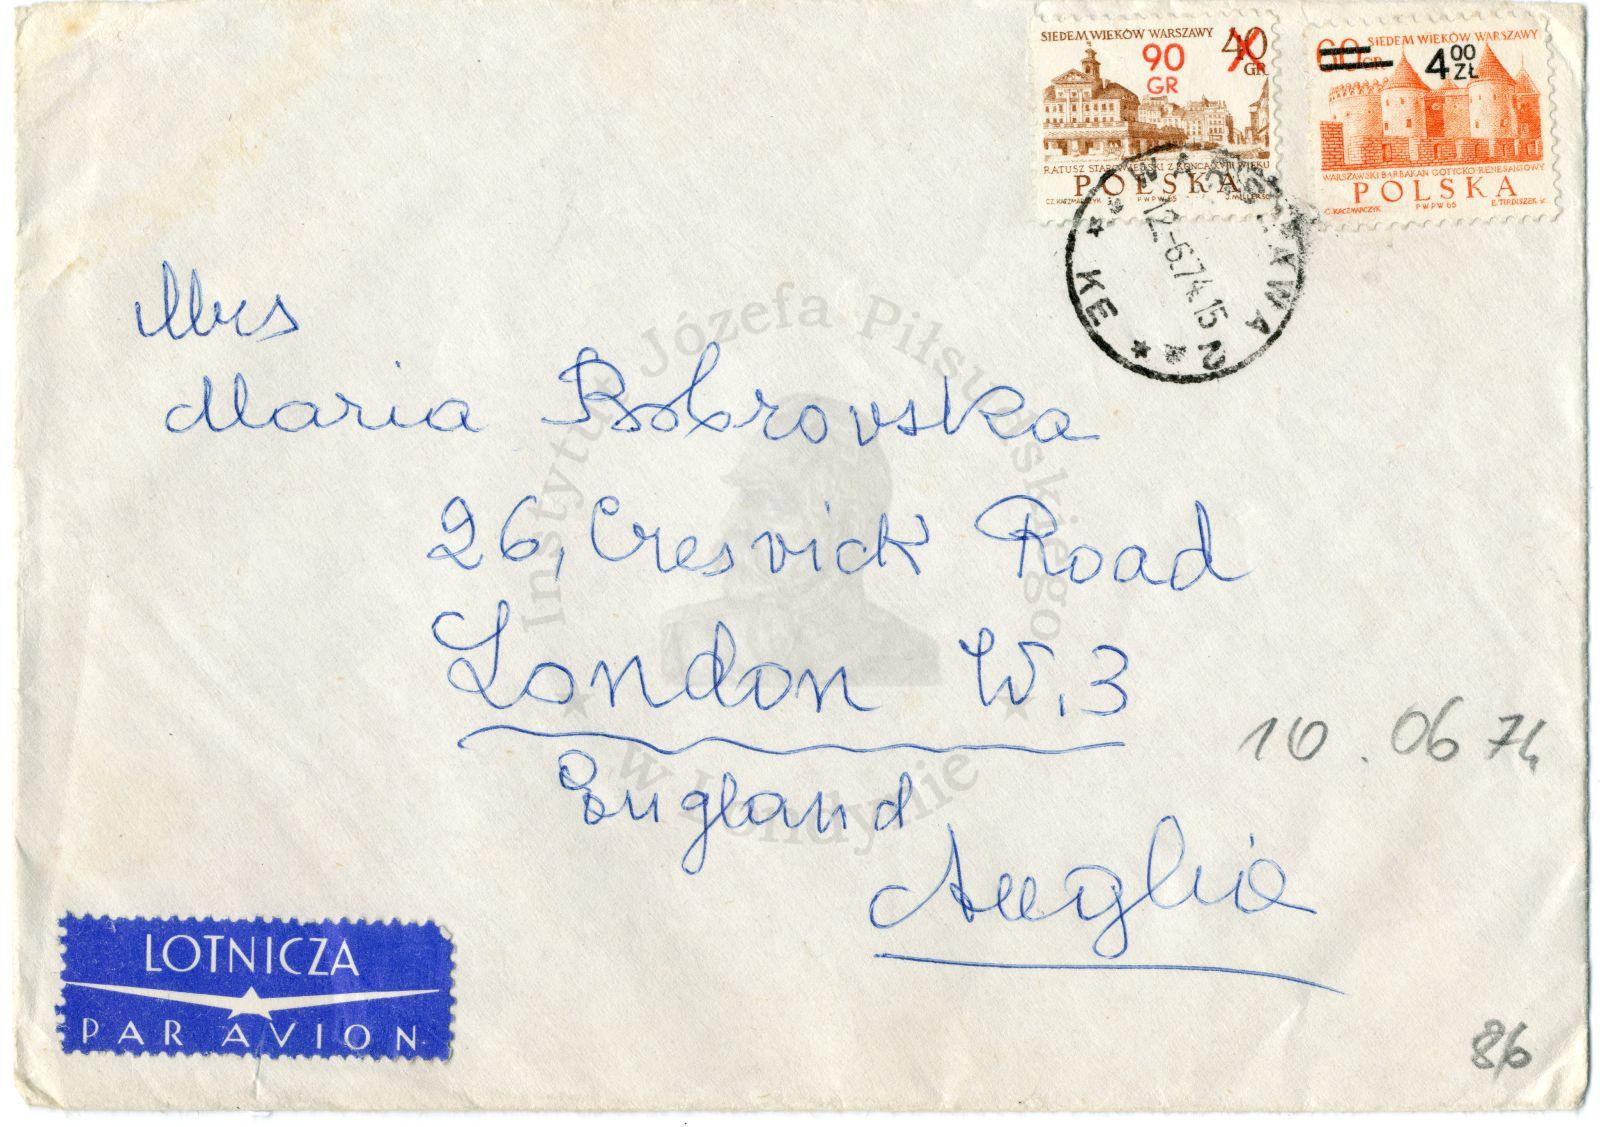 SIEDEM WIEKÓW WARSZAWY
90 GR
40 GR
RATUSZ STAROMIEJSKI Z KOŃCA XVIII WIEKU
POLSKA
CZ. KACZMARCZYK PWPW 65
SIEDEM WIEKÓW WARSZAWY
60 GR
4 00 ZŁ
WARSZAWSKI BARBAKAN GOTYCKO-RENESANSOWY
POLSKA
CZ. KACZMARCZYK PWPW 65 E. TIRDISZEK
WARSZAWA 2
12.-6.74.15
KE
Mrs
Maria Bobrovska
26, Cresvick Road
London W.3
England
Anglia
10.06 74
86
Instytut Józefa Piłsudskiego
w Londynie
LOTNICZA
PAR AVION